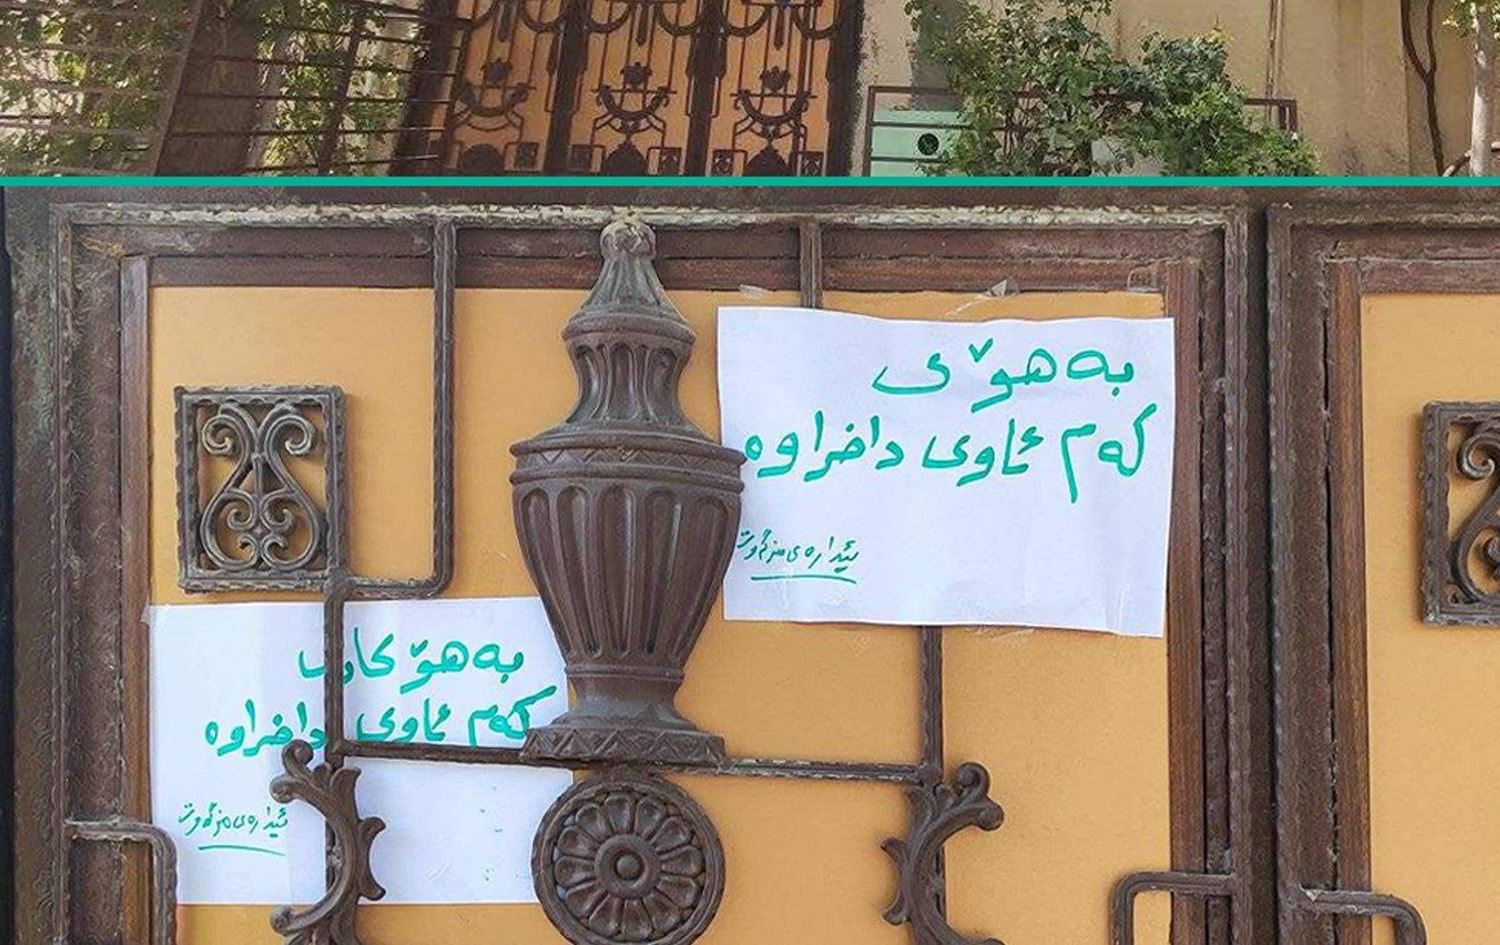 بە هۆی
کەم ئاوی داخراوە
ئیدارەی مزگەوت
بە هۆ کاری
کەم ئاوی داخراوە
ئیدارەی مزگەوت